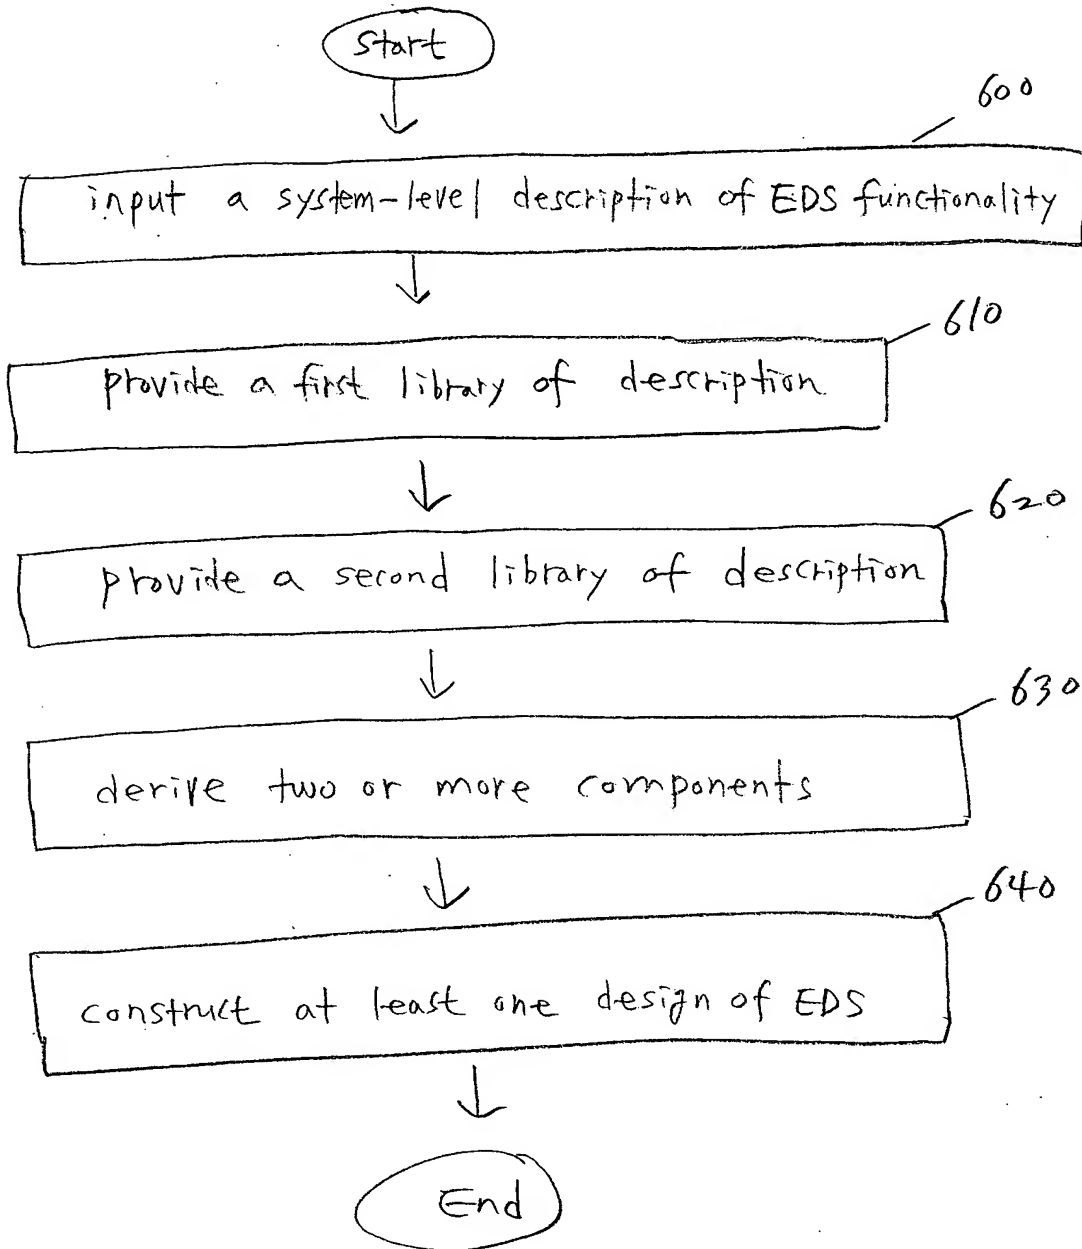 Start
600
input a system-level description of EDS functionality
610
provide a first library of description
620
provide a second library of description
630
derive two or more components
640
construct at least one design of EDS
End